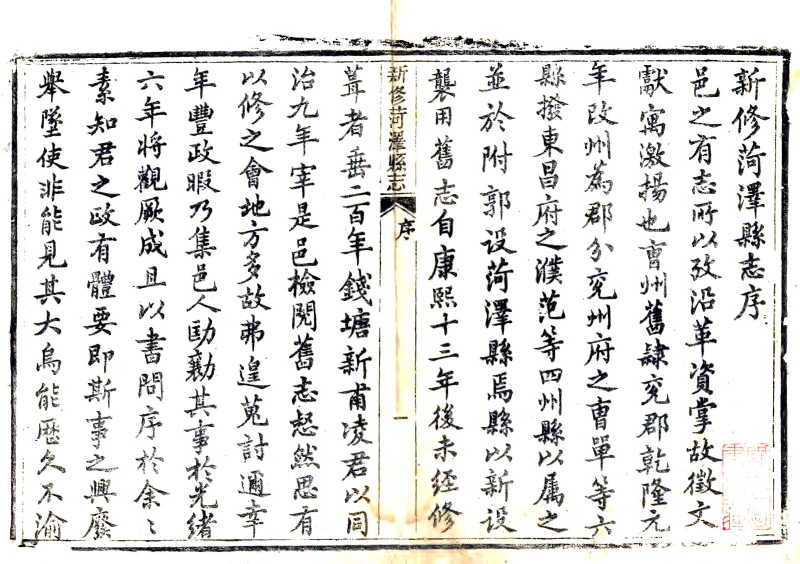 新修菏澤縣志序
邑之有志所以攷沿革資掌故徵文
獻寓激揚也曹州舊隸兗郡乾隆元
年改州為郡分兗州府之曹單等六
縣撥東昌府之濮范等四州縣以属之
並於附郭設菏澤縣焉縣以新設
襲用舊志自康熙十三年後未經修
新修菏澤縣志
序
一
葺者垂二百年錢塘新甫凌君以同
治九年宰是邑檢閱舊志惄然思有
以修之會地方多故弗遑蒐討邇幸
年豐政暇乃集邑人勷其事於光緒
六年將觀厥成且以書問序於余〻
素知君之政有體要即斯事之興廢
舉墜使非能見其大烏能歷久不渝